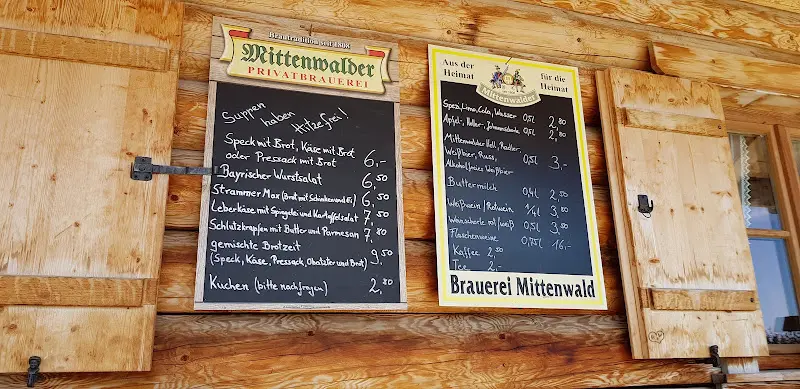 Brautradition seit 1808
Mittenwalder
PRIVATBRAUEREI
Suppen haben Hitzefrei!
Speck mit Brot, Käse mit Brot
oder Pressack mit Brot 6,-
Bayrischer Wurstsalat 6,50
Strammer Max (Brot mit Schinken und Ei) 6,50
Leberkäse mit Spiegelei und Kartoffelsalat 7,50
Schlutzkrapfen mit Butter und Parmesan 7,80
gemischte Brotzeit 9,50
(Speck, Käse, Pressack, Obatzter und Brot)
Kuchen (bitte nachfragen) 2,80
Aus der Heimat
für die Heimat
Mittenwalder
Spezi, Limo, Cola, Wasser 0,5l 2,80
Apfel-, Holler-, Johannisschorle 0,5l 2,80
Mittenwalder Hell, Radler,
Weißbier, Russ, 0,5l 3,-
Alkoholfreies Weißbier
Buttermilch 0,4l 2,50
Weißwein/Rotwein 1/4l 3,80
Weinschorle rot/weiß 0,5l 3,50
Flaschenweine 0,75l 16,-
Kaffee 2,50
Tee 2,-
Brauerei Mittenwald